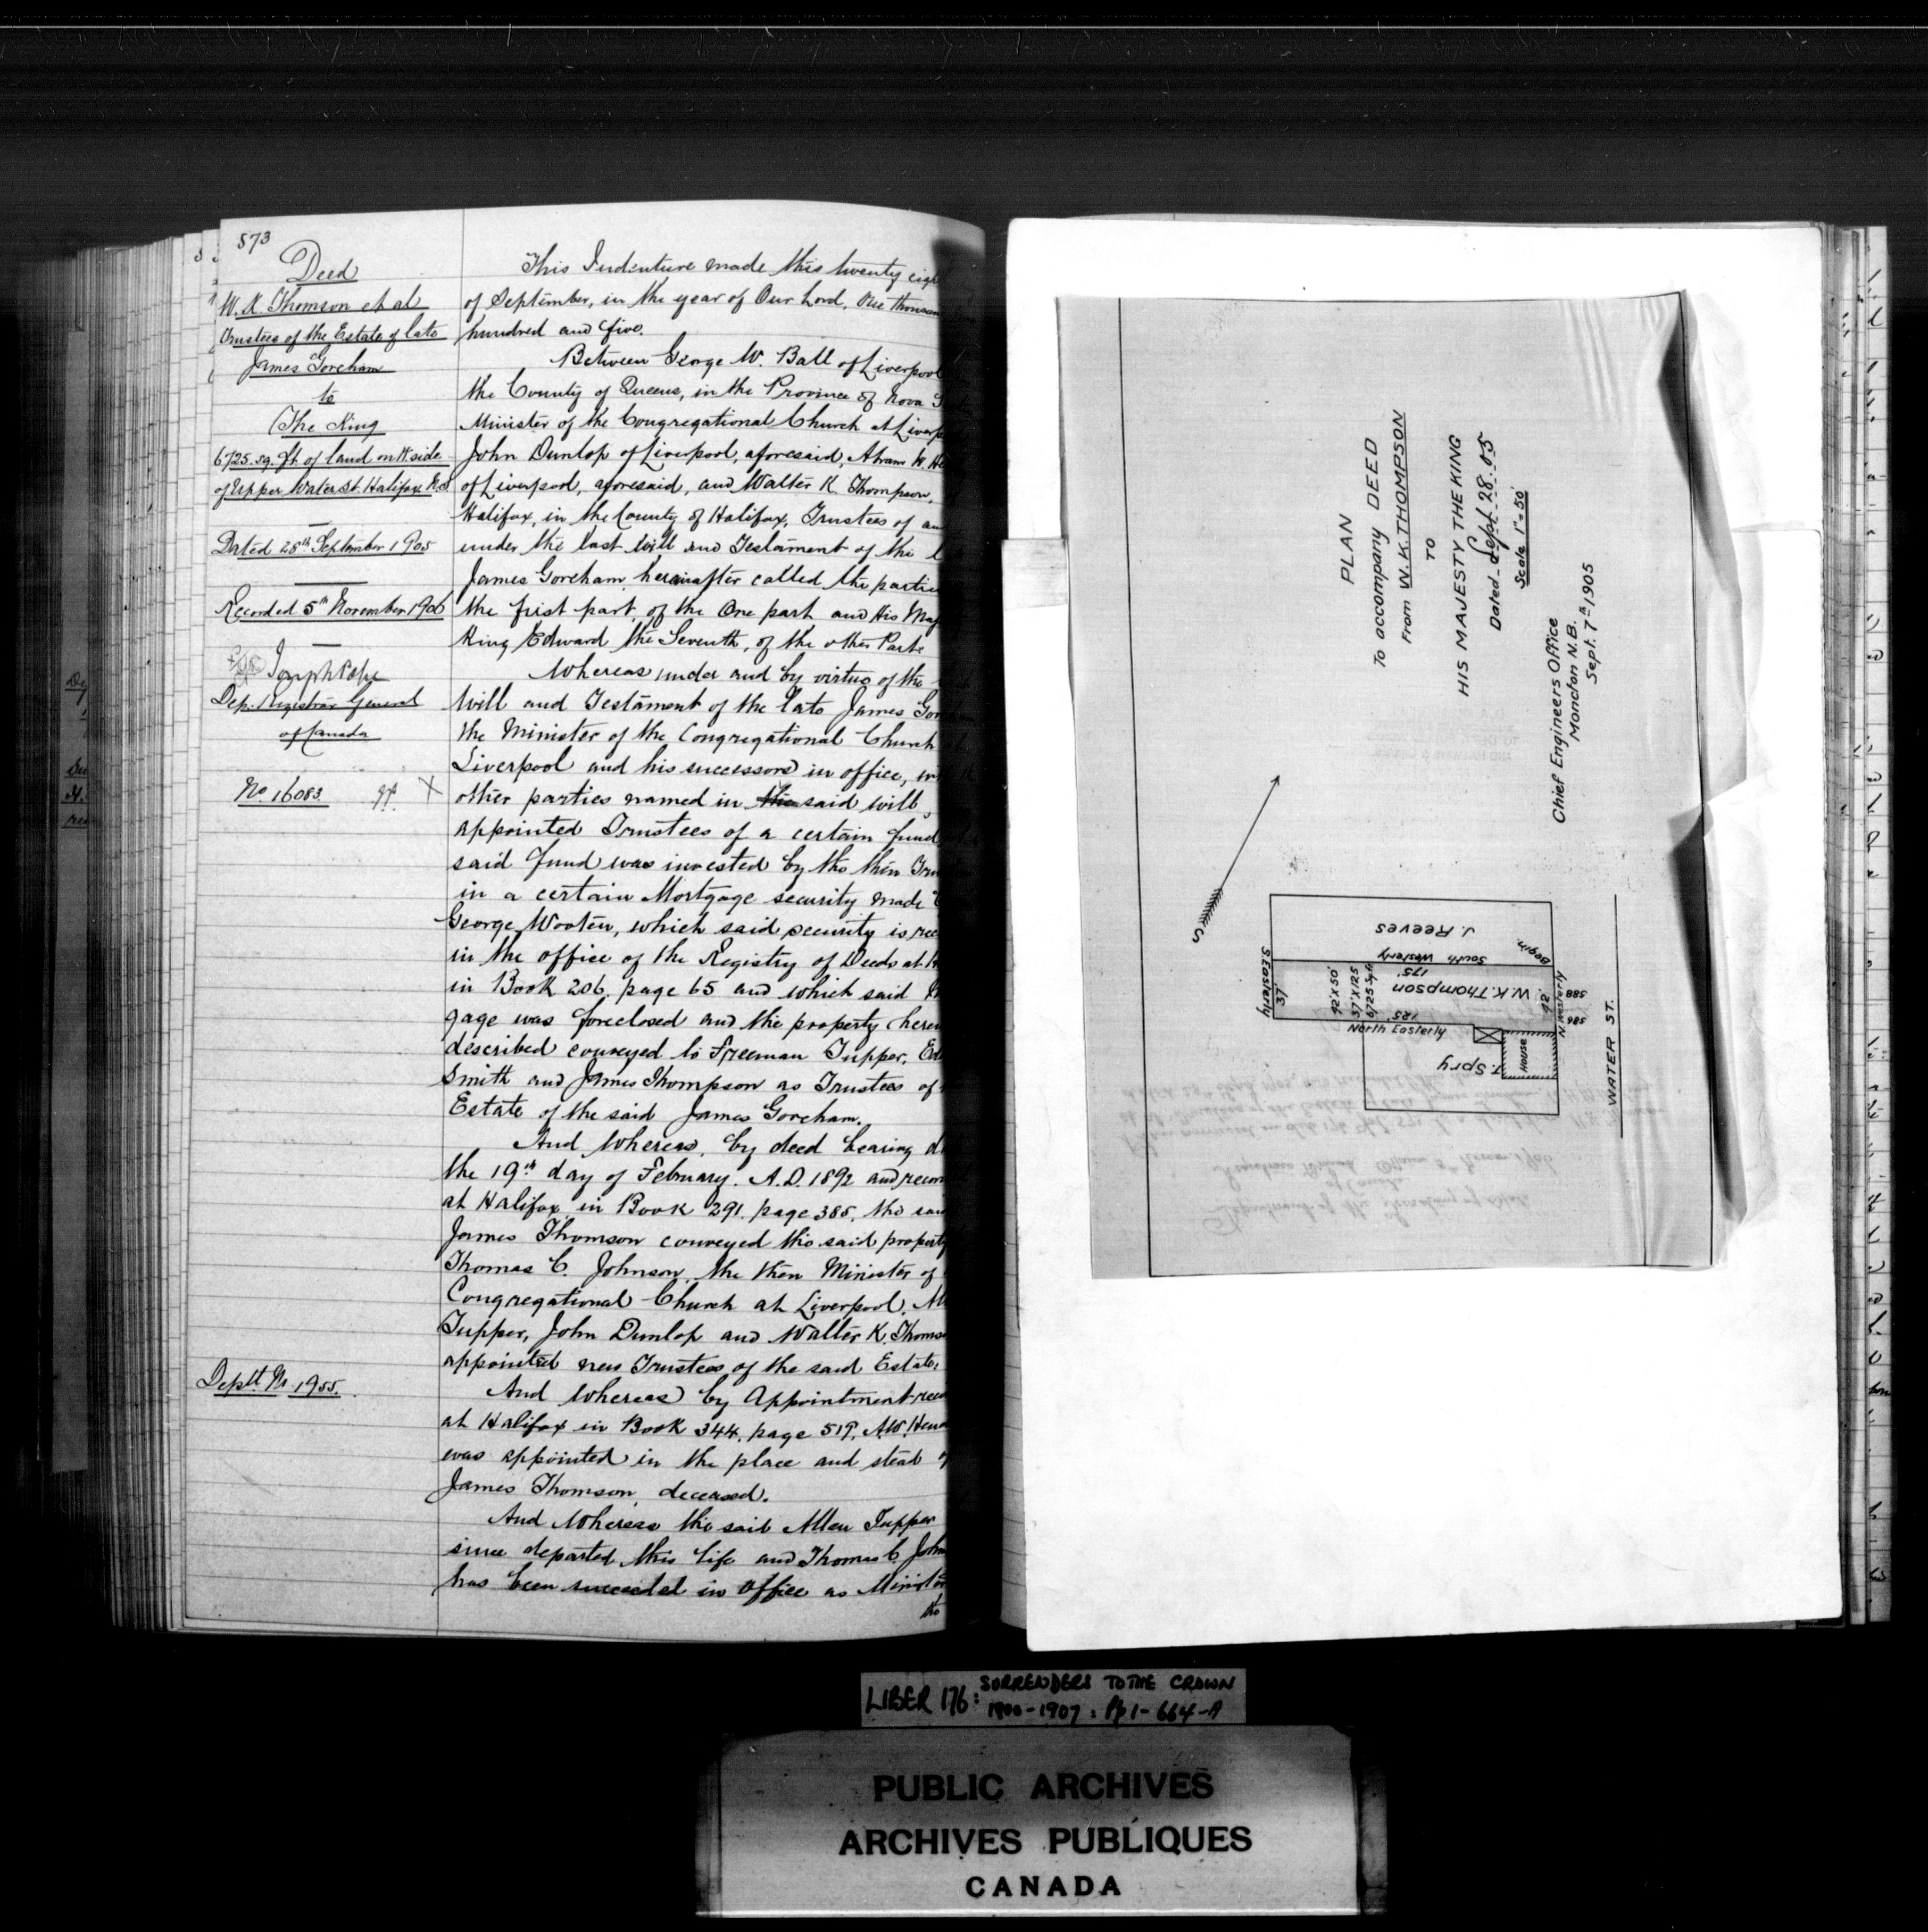 573
Deed
W. K. Thomson et al
Trustees of the Estate of late
James Goreham
to
The King
6725 sq. ft. of land on W side
of Upper Water St. Halifax N.S
Dated 28th September 1905
Recorded 5th November 1906
Joseph Pope
Dep. Registrar General
of Canada
No 16083.
Deptl. No 1955.
This Indenture made this twenty eigh
of September, in the year of Our Lord, One thousan
hundred and five.
Between George W. Ball of Liverpool
the County of Queens, in the Province of Nova Scotia
Minister of the Congregational Church at Liverp
John Dunlop of Liverpool, aforesaid, Abram W. He
of Liverpool, aforesaid, and Walter K. Thompson,
Halifax, in the County of Halifax, Trustees of an
under the last Will and Testament of the l
James Goreham hereinafter called the parties
the first part, of the One part, and His Maj
King Edward the Seventh, of the other Part.
Whereas under and by virtue of the last
Will and Testament of the late James Gor
the Minister of the Congregational Church
Liverpool and his successors in office, wi
other parties named in the said will,
appointed Trustees of a certain fund
said fund was invested by the then Tru
in a certain Mortgage security made b
George Wooten, which said security is rec
in the office of the Registry of Deeds at H
in Book 206. page 65 and which said M
gage was foreclosed and the property herei
described conveyed to Freeman Tupper, Ed
Smith and James Thompson as Trustees of
Estate of the said James Goreham.
And Whereas, by deed bearing d
the 19th day of February. A.D. 1892 and recor
at Halifax in Book 291. page 385, the sai
James Thomson conveyed the said property
Thomas C. Johnson, the then Minister of
Congregational Church at Liverpool, Al
Tupper, John Dunlop and Walter K. Thomso
appointed new Trustees of the said Estate,
And Whereas by Appointment reco
at Halifax in Book 344. page 519, A.W. Hen
was appointed in the place and stead o
James Thomson, deceased.
And Whereas the said Allen Tupper
since departed this life and Thomas C. John
has been succeeded in office as Minister
the
PLAN
To accompany DEED
From W. K. THOMPSON
TO
HIS MAJESTY THE KING
Dated - Sept. 28. 05
Scale 1" = 50'
Chief Engineers Office
Moncton N.B.
Sept. 7th 1905
S
J. Reeves
Begin.
South Westerly
175'
S.Easterly
37'
42' X 50'
37' X 125
6725 Sq.ft.
W.K.Thompson
42'
N Westerly
588
586
125'
North Easterly
T. Spry
HOUSE
WATER ST.
LIBER 176: SURRENDERS TO THE CROWN
1900-1907: Pp 1-664-A
PUBLIC ARCHIVES
ARCHIVES PUBLIQUES
CANADA